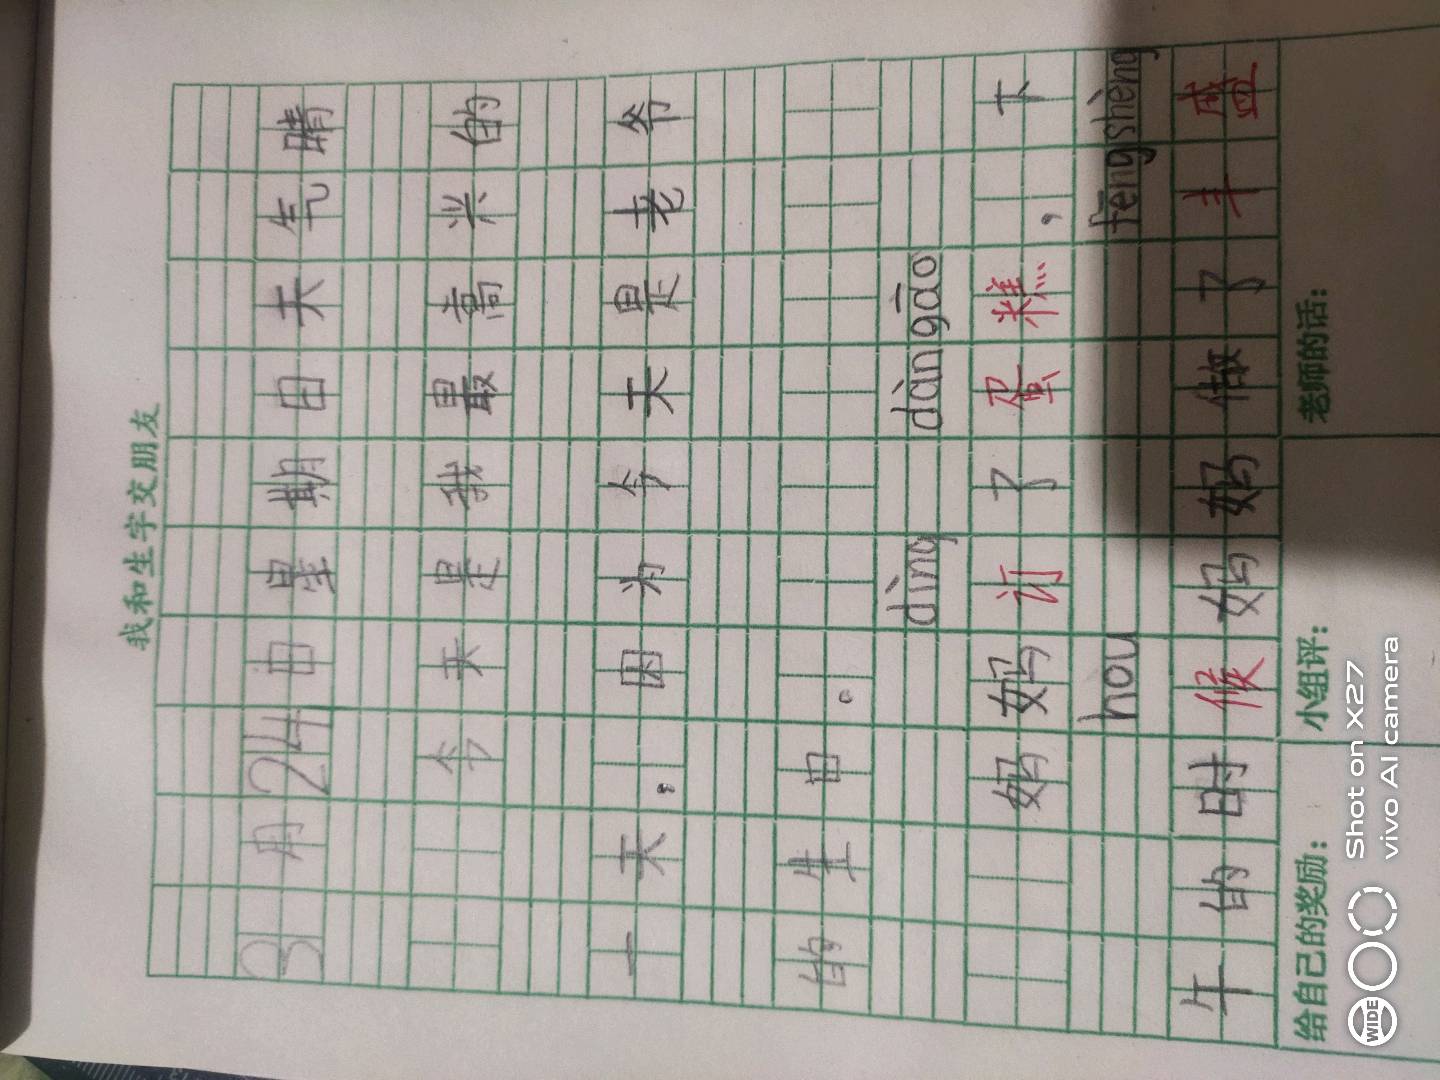 我和生字交朋友
3月24日星期日天气晴
今天是我最高兴的
一天。因为今天是老爷
的生日。
dìng dàngāo
妈妈订了蛋糕,下
hou fēngshèng
午的时候妈妈做了丰盛
给自己的奖励: 小组评: 老师的话:
WIDE
Shot on X27
vivo AI camera